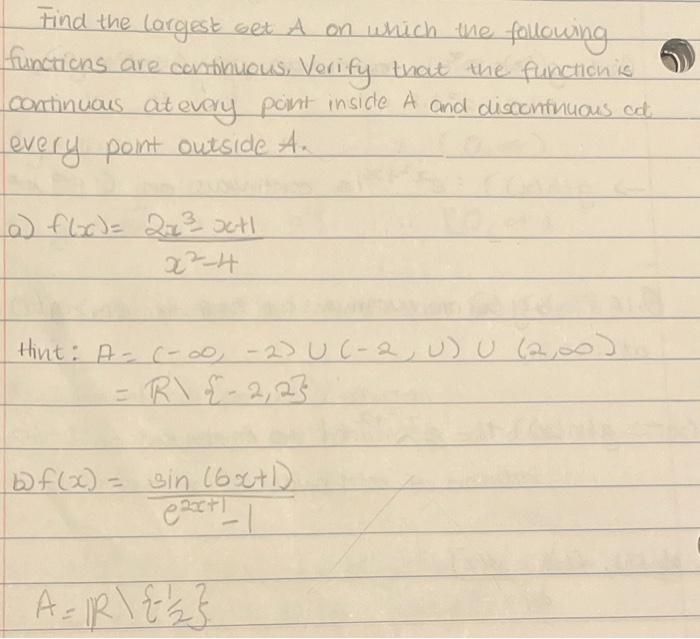 Find the largest set A on which the following
functions are continuous. Verify that the function is
continuous at every point inside A and discontinuous at
every point outside A.
a) f(x) = 2x³ - x+1
x²-4
Hint: A = (-∞, -2) ∪ (-2, U) ∪ (2, ∞)
= ℝ\ {-2,2}
b) f(x) = sin (6x+1)
e^{2x+1} - 1
A = ℝ\{-1/2}